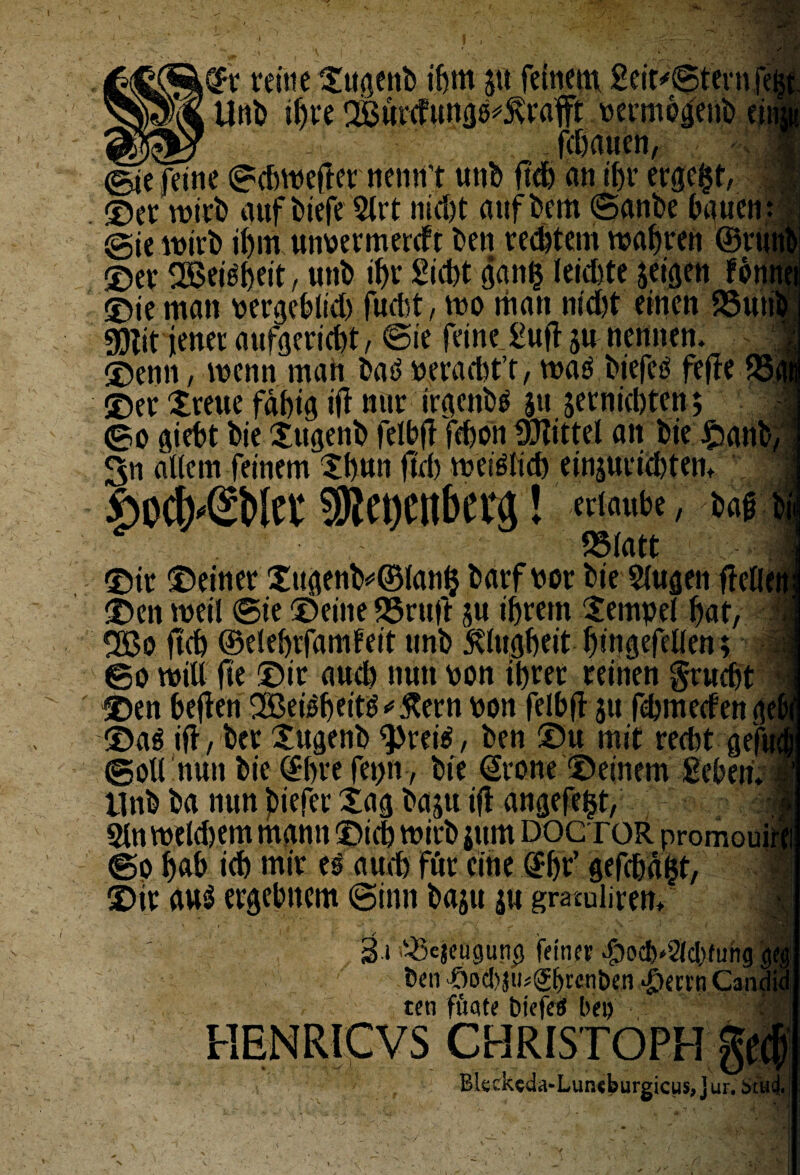 WEr reine Tugend ihm zu seinem Leit-Stern setzt
Und ihre Würckungs-Krafft vermögend
schauen,
Sie seine Schwester nenn't und sich an ihr ergetzt,
Der wird auf diese Art nicht auf dem Sande bauen:
Sie wird ihm unvermerckt den rechtem wahren Grund
Der Weisheit, und ihr Licht gantz leichte zeigen könne
Die man vergeblich sucht, wo man nicht einen Bund
Mit jener aufgericht, Sie seine Lust zu nennen.
Denn, wenn man das veracht't, was dieses feste
Der Treue fähig ist nur irgends zu zernichten;
So giebt die Tugend selbst schon Mittel an die Hand,
In allem seinem Thun sich weislich einzurichten.
Hoch-Edler Meyenberg! erlaube, daß
Blatt
Dir Deiner Tugend-Glantz darf vor die Augen stellen
Den weil Sie Deine Brust zu ihrem Tempel hat,
Wo sich Gelehrsamkeit und Klugheit hingesellen;
So will sie Dir auch nun von ihrer reinen Frucht
Den besten Weisheits-Kern von selbst zu schmecken
Das ist, der Tugend Preis, den Du mit recht
Soll nun die Ehre seyn, die Crone Deinem Leben.
Und da nun dieser Tag dazu ist angesetzt,
An welchem mann Dich wird zum DOCTOR promouire
So hab ich mir es auch für eine Ehr' geschätzt,
Dir aus ergebnem Sinn dazu zu gratuliren.
Zu Bezeugung seiner Hoch-Achtung geg
den Hoch-zu-Ehrenden Herrn Candid
ten fügte dieses bey
HENRICVS CHRISTOPH
Bleckeda-Luneburgicus, Jur. Stud.